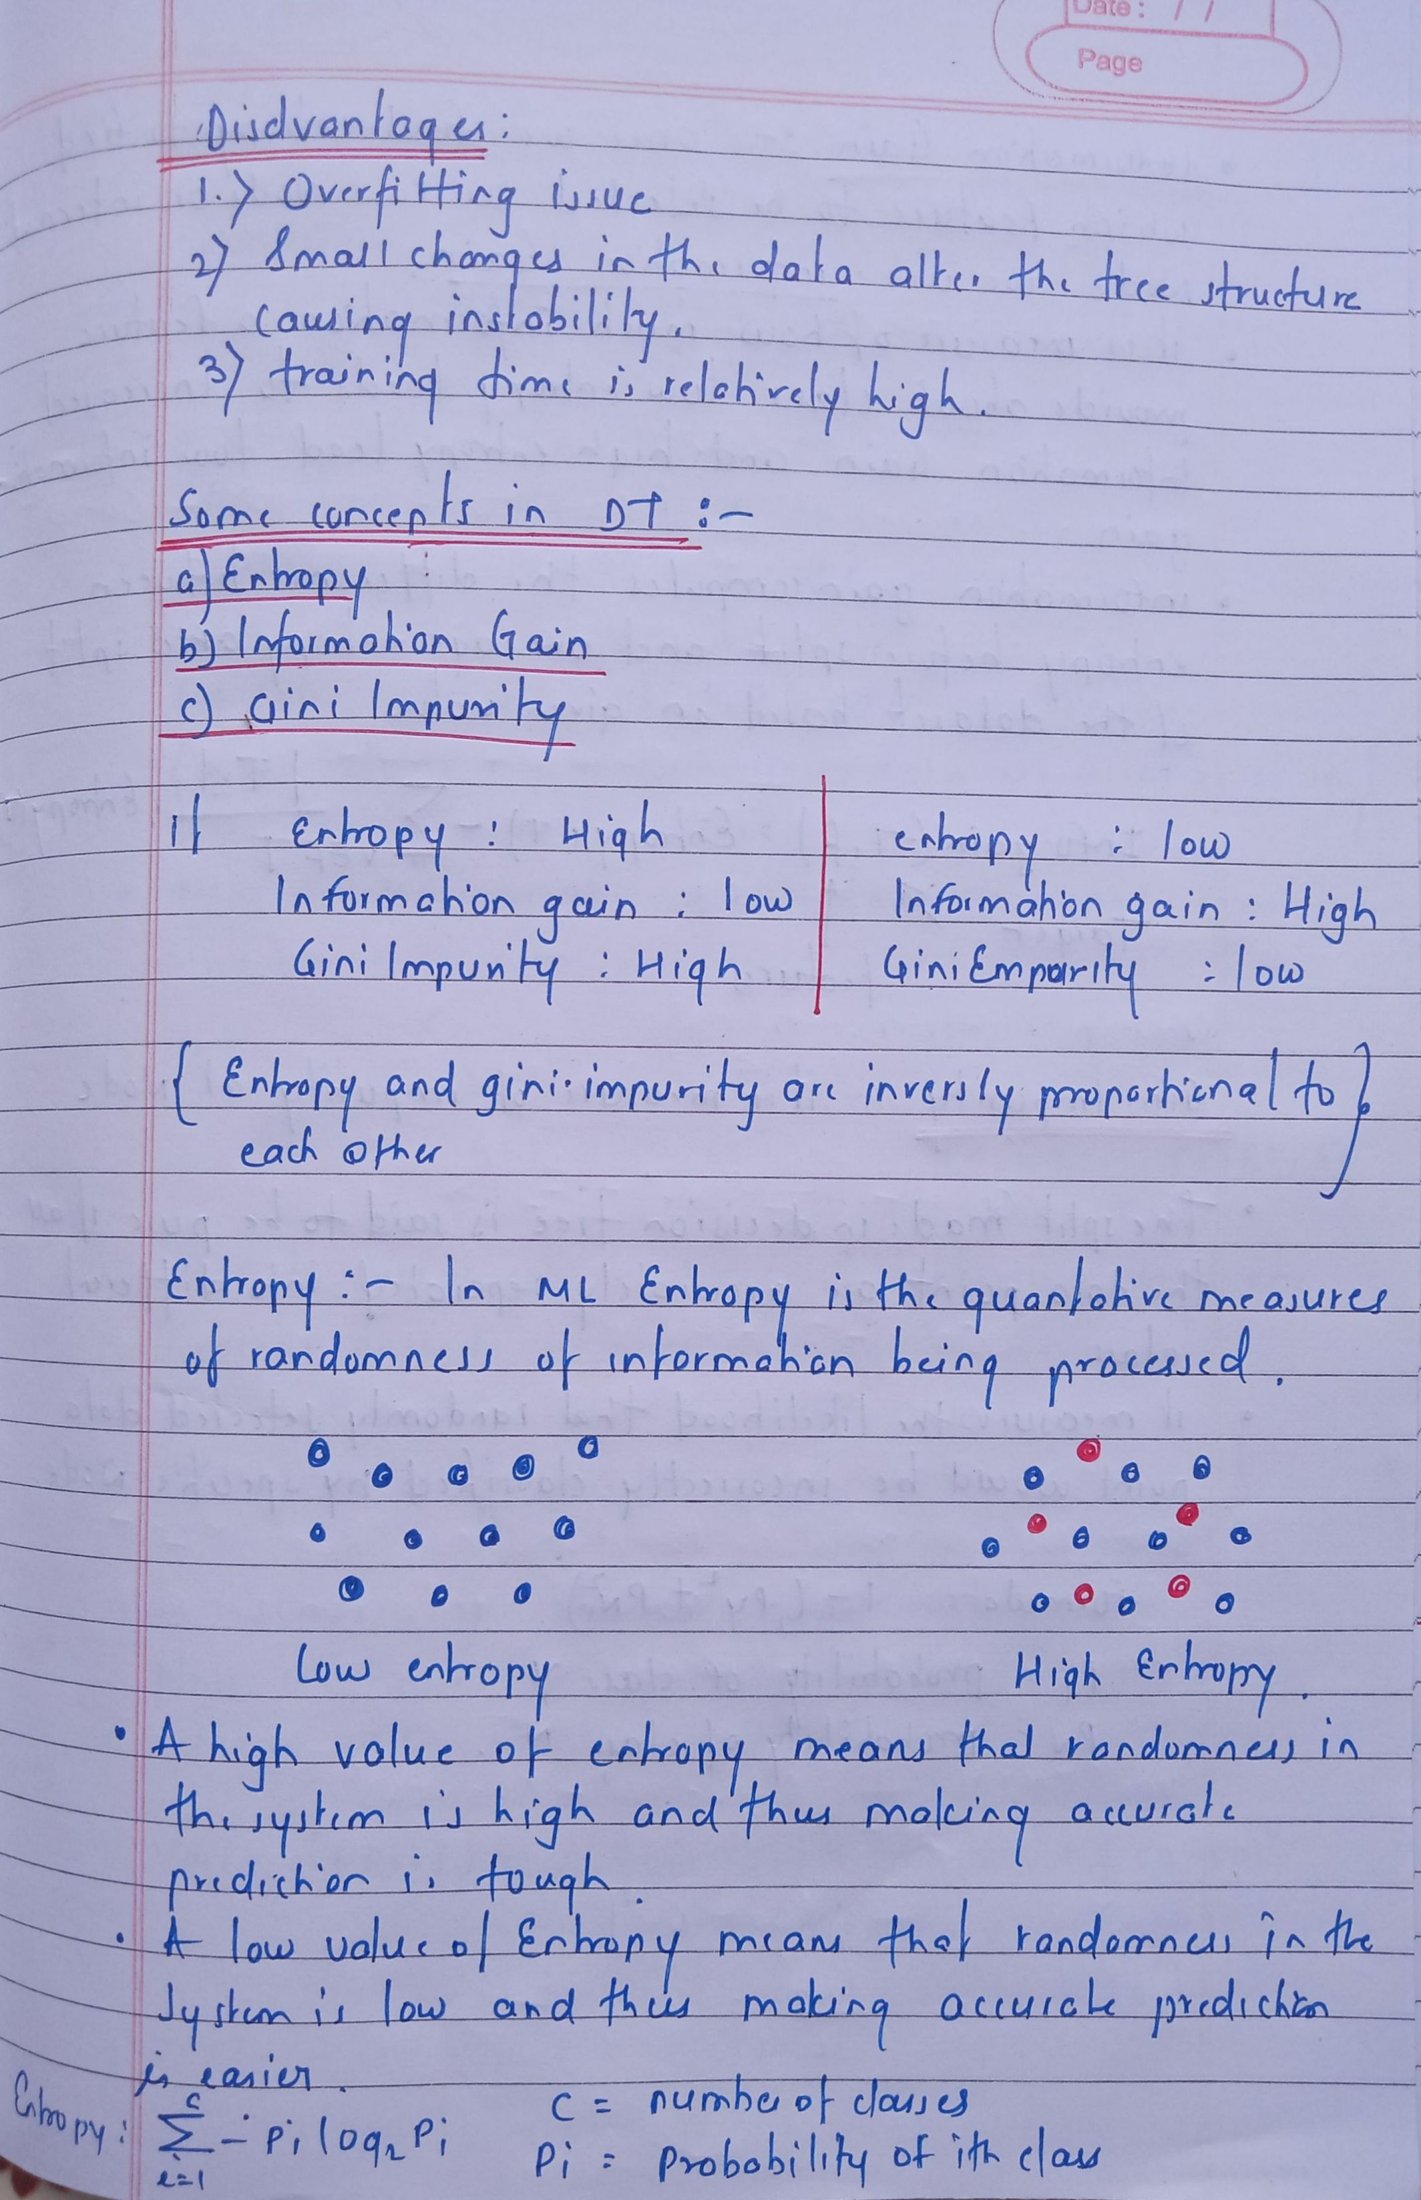 Date : / /
Page
Disdvantages:
1.) Overfitting issue
2) Small changes in the data alter the tree structure
causing instability.
3) training time is relatively high.
Some concepts in DT :-
a) Entropy
b) Information Gain
c) Gini Impurity
if Entropy : High
Information gain : low
Gini Impurity : High
entropy : low
Information gain : High
Gini Emparity : low
{ Entropy and gini-impurity are inversly proportional to
each other }
Entropy :- In ML Entropy is the quantative measures
of randomness of information being processed.
Low entropy
High Entropy.
• A high value of entropy means that randomness in
the system is high and thus making accurate
prediction is tough.
• A low value of Entropy means that randomness in the
system is low and thus making accurate prediction
is easier.
Entropy : c∑i=1 - Pi log2 Pi
C = number of classes
Pi = Probability of ith class